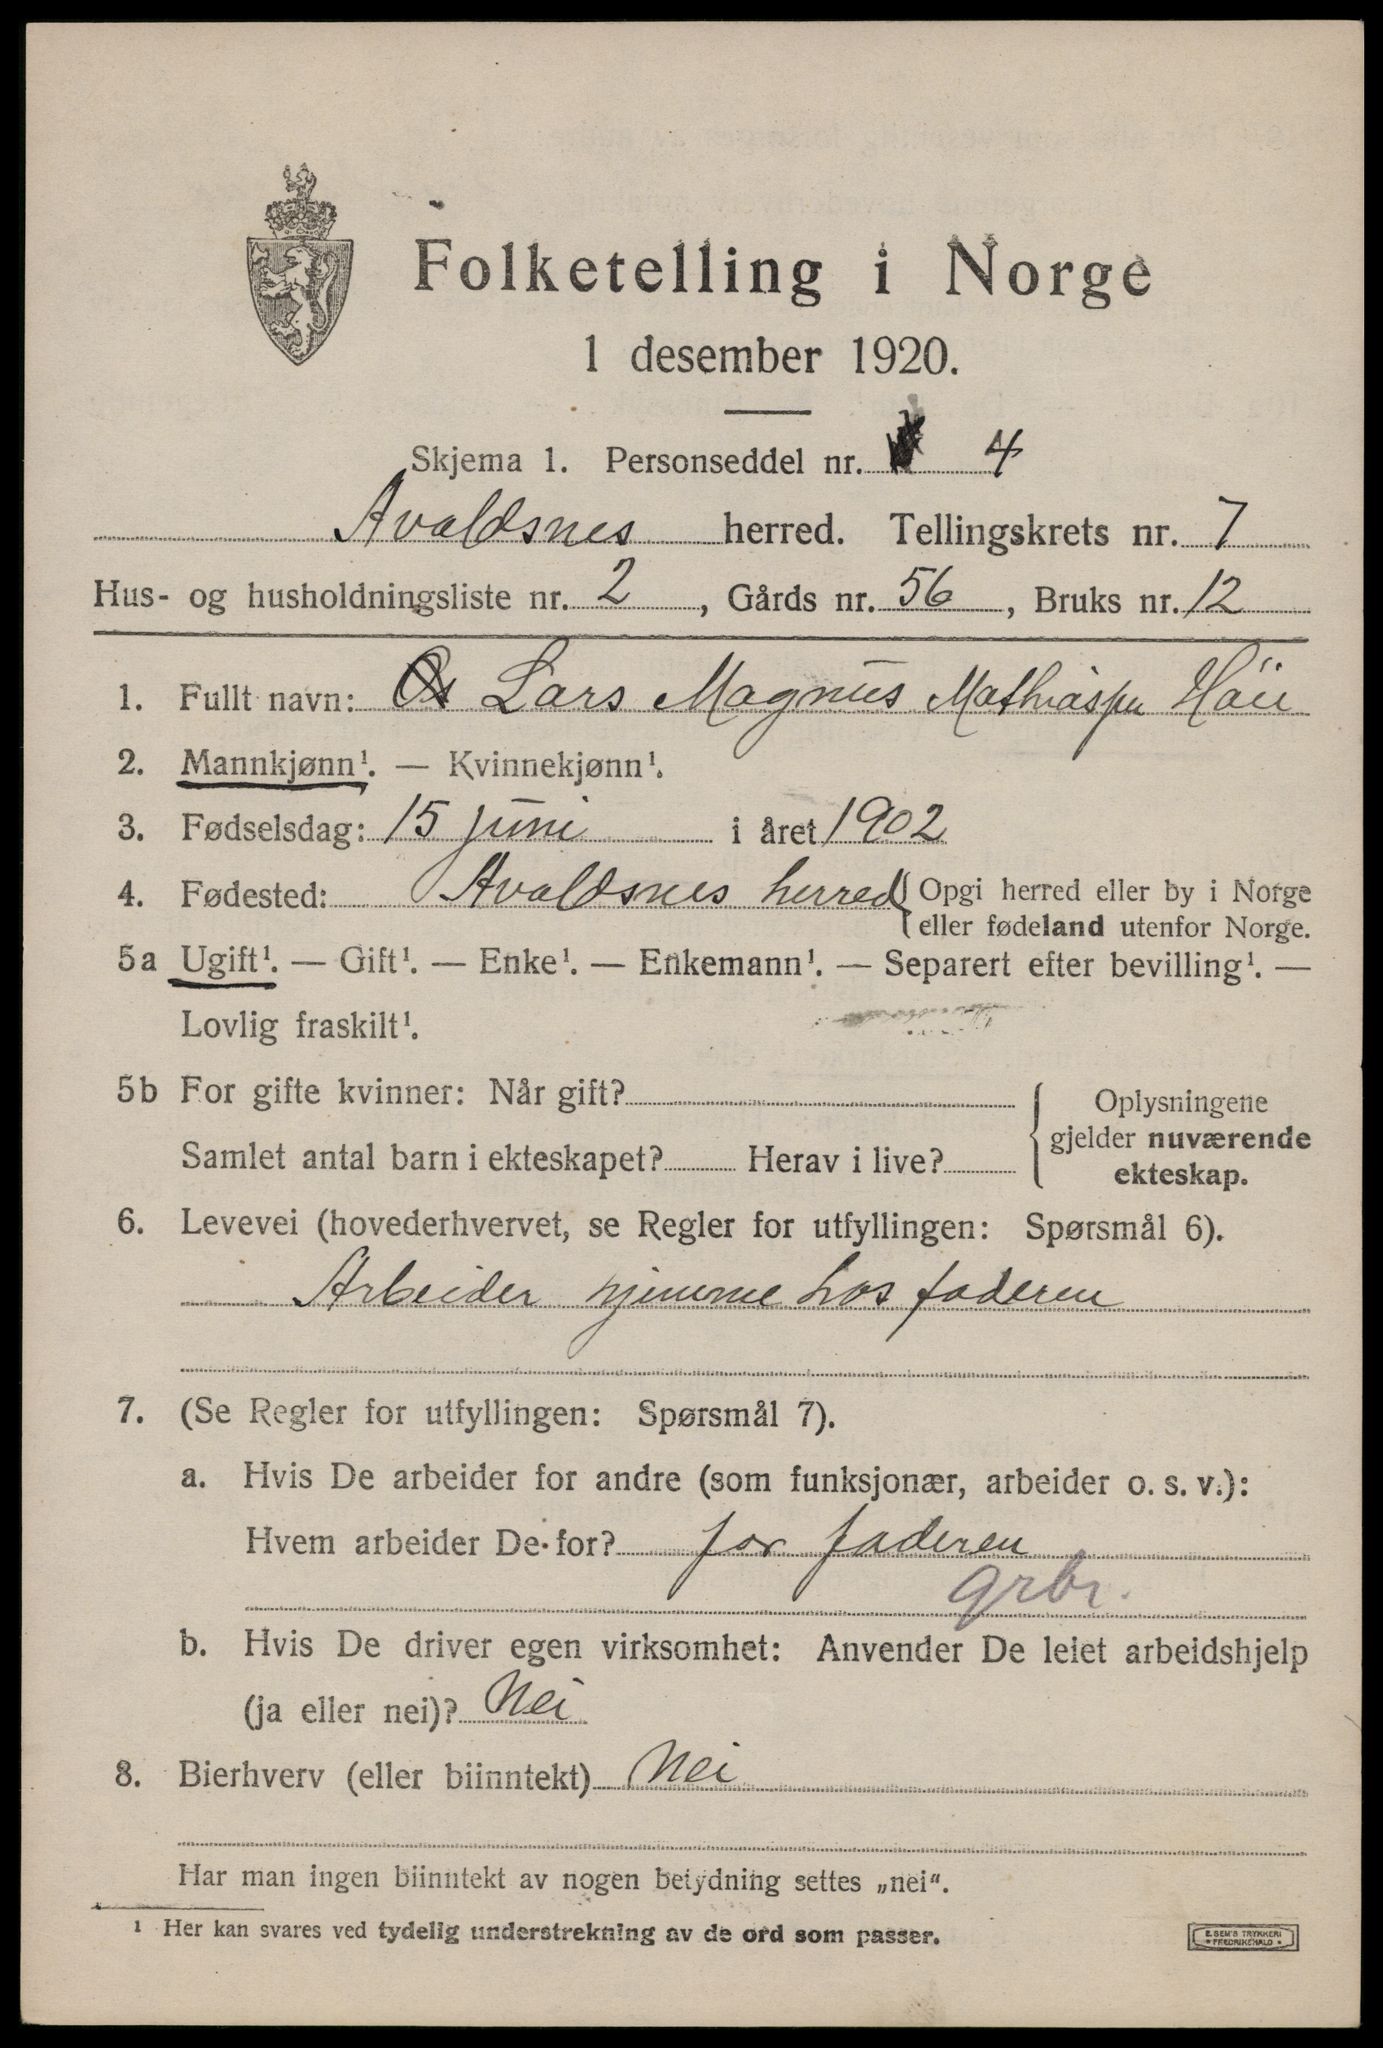 Folketelling i Norge
1 desember 1920.
Skjema 1. Personseddel nr. 4
Avaldsnes herred. Tellingskrets nr. 7
Hus- og husholdningsliste nr. 2, Gårds nr. 56, Bruks nr. 12
1. Fullt navn: Lars Magnus Mathias
2. Mannkjønn¹. — Kvinnekjønn¹.
3. Fødselsdag: 15 juni i året 1902
4. Fødested: Avaldsnes herred { Opgi herred eller by i Norge
eller fødeland utenfor Norge.
5a Ugift¹. — Gift¹. — Enke¹. — Enkemann¹. — Separert efter bevilling¹. —
Lovlig fraskilt¹.
5b For gifte kvinner: Når gift?
Samlet antal barn i ekteskapet? Herav i live?
Oplysningene
gjelder nuværende
ekteskap.
6. Levevei (hovederhvervet, se Regler for utfyllingen: Spørsmål 6).
Arbeider hjemme hos faderen
7. (Se Regler for utfyllingen: Spørsmål 7).
a. Hvis De arbeider for andre (som funksjonær, arbeider o. s. v.):
Hvem arbeider De for? for faderen
grbr.
b. Hvis De driver egen virksomhet: Anvender De leiet arbeidshjelp
(ja eller nei)? Nei
8. Bierhverv (eller biinntekt) Nei
Har man ingen biinntekt av nogen betydning settes „nei“.
¹ Her kan svares ved tydelig understrekning av de ord som passer.
E. SEM'S TRYKKERI
FREDRIKSHALD